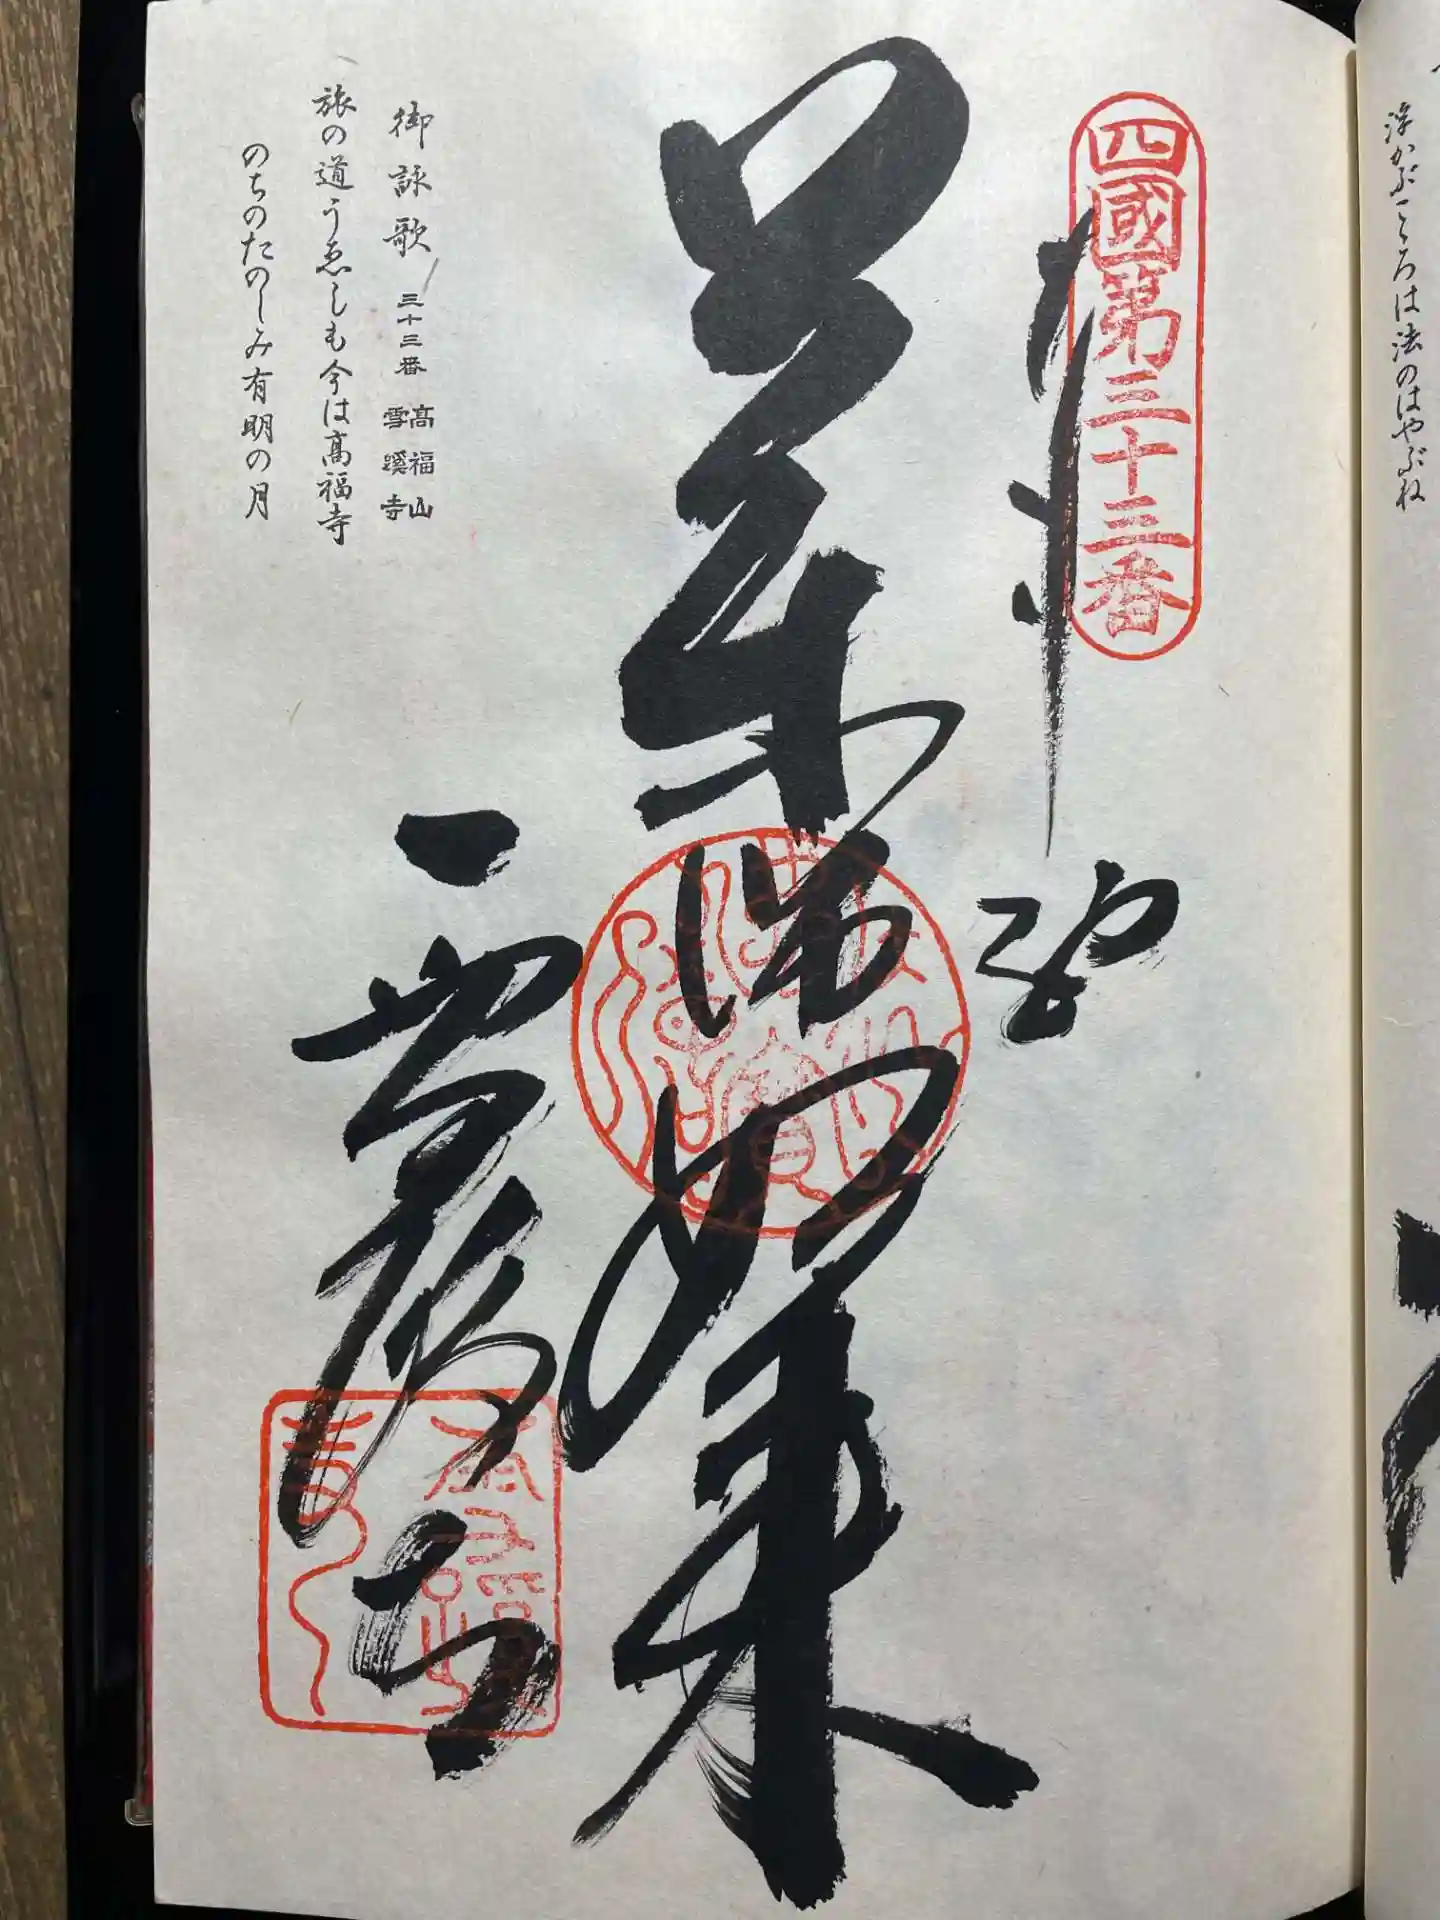 浮かぶこころは法のはやぶね
四國第三十三番
薬師如来
雪蹊寺
御詠歌 三十三番 高福山 雪蹊寺
旅の道うゑしも今は高福寺
のちのたのしみ有明の月